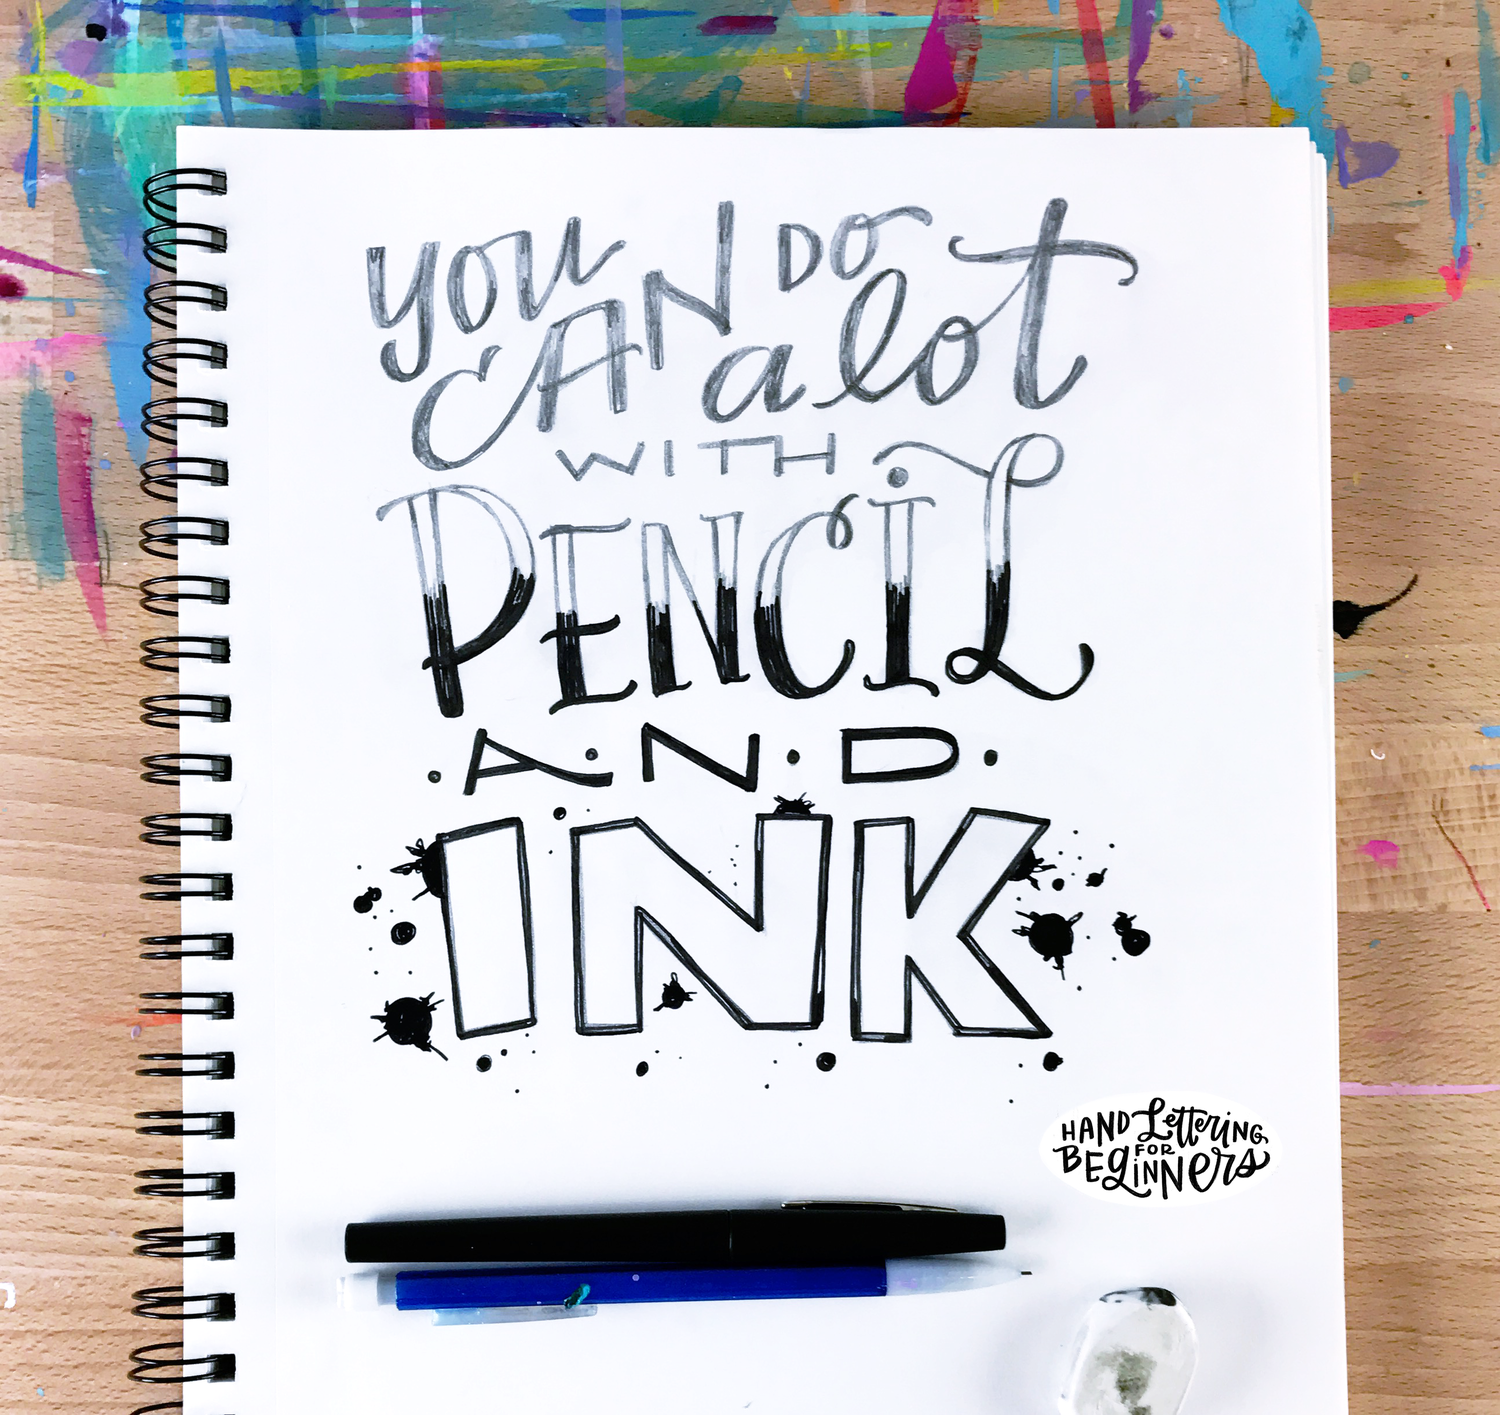 you CAN DO
a lot
WITH
PENCIL
A·N·D
INK
HAND Lettering
FOR
BEGINNERS